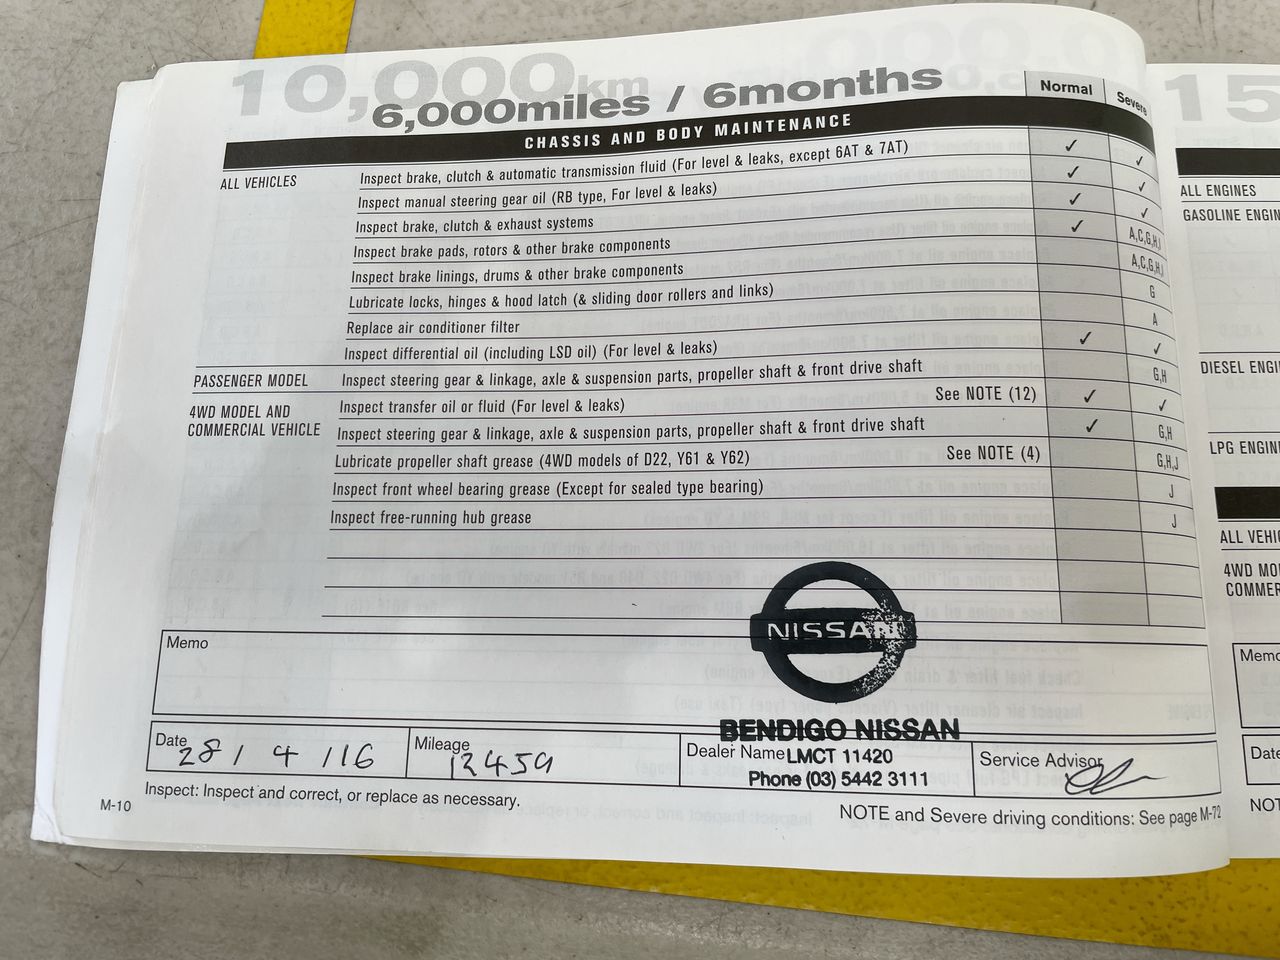 10,000km
6,000miles / 6months
Normal
Severe
CHASSIS AND BODY MAINTENANCE
ALL VEHICLES
Inspect brake, clutch & automatic transmission fluid (For level & leaks, except 6AT & 7AT) ✓ ✓
Inspect manual steering gear oil (RB type, For level & leaks) ✓ ✓
Inspect brake, clutch & exhaust systems ✓ ✓
Inspect brake pads, rotors & other brake components ✓ A,C,G,H,J
Inspect brake linings, drums & other brake components A,C,G,H,J
Lubricate locks, hinges & hood latch (& sliding door rollers and links) G
Replace air conditioner filter A
Inspect differential oil (including LSD oil) (For level & leaks) ✓ ✓
PASSENGER MODEL
Inspect steering gear & linkage, axle & suspension parts, propeller shaft & front drive shaft G,H
4WD MODEL AND
COMMERCIAL VEHICLE
Inspect transfer oil or fluid (For level & leaks) See NOTE (12) ✓ ✓
Inspect steering gear & linkage, axle & suspension parts, propeller shaft & front drive shaft ✓ G,H
Lubricate propeller shaft grease (4WD models of D22, Y61 & Y62) See NOTE (4) G,H,J
Inspect front wheel bearing grease (Except for sealed type bearing) J
Inspect free-running hub grease J
Memo
NISSAN
BENDIGO NISSAN
LMCT 11420
Phone (03) 5442 3111
Date
28/4/16
Mileage
12459
Dealer Name
Service Advisor
Inspect: Inspect and correct, or replace as necessary.
NOTE and Severe driving conditions: See page M-72
M-10
15
ALL ENGINES
GASOLINE ENGIN
DIESEL ENGI
LPG ENGIN
ALL VEHIC
4WD MO
COMMER
Memo
Date
NOT